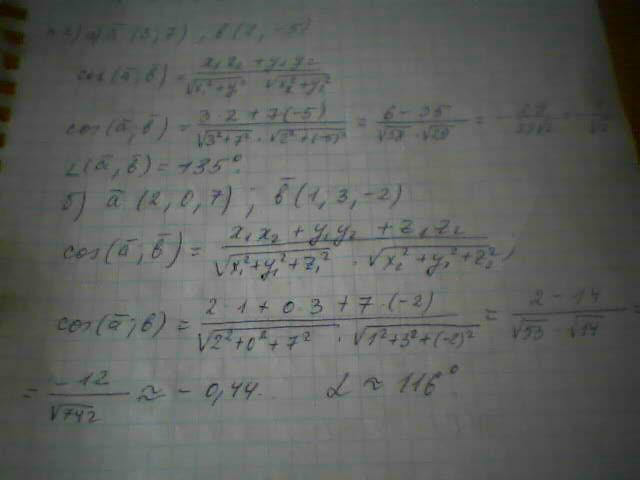 а) ā (3, 7), b̄ (2, -5)
cos(ā, b̄) = (x₁x₂ + y₁y₂) / (√(x₁²+y₁²) · √(x₂²+y₂²))
cos(ā, b̄) = (3·2 + 7(-5)) / (√(3²+7²) · √(2²+(-5)²)) = (6 - 35) / (√58 · √29) = - 29 / (29√2) = - 1/√2
∠(ā, b̄) = 135°.
б) ā (2, 0, 7) ; b̄ (1, 3, -2)
cos(ā, b̄) = (x₁x₂ + y₁y₂ + z₁z₂) / (√(x₁²+y₁²+z₁²) · √(x₂²+y₂²+z₂²)),
cos(ā; b) = (2·1 + 0·3 + 7·(-2)) / (√(2²+0²+7²) · √(1²+3²+(-2)²)) = (2 - 14) / (√53 · √14) =
= -12 / √742 ≈ - 0,44. α ≈ 116°